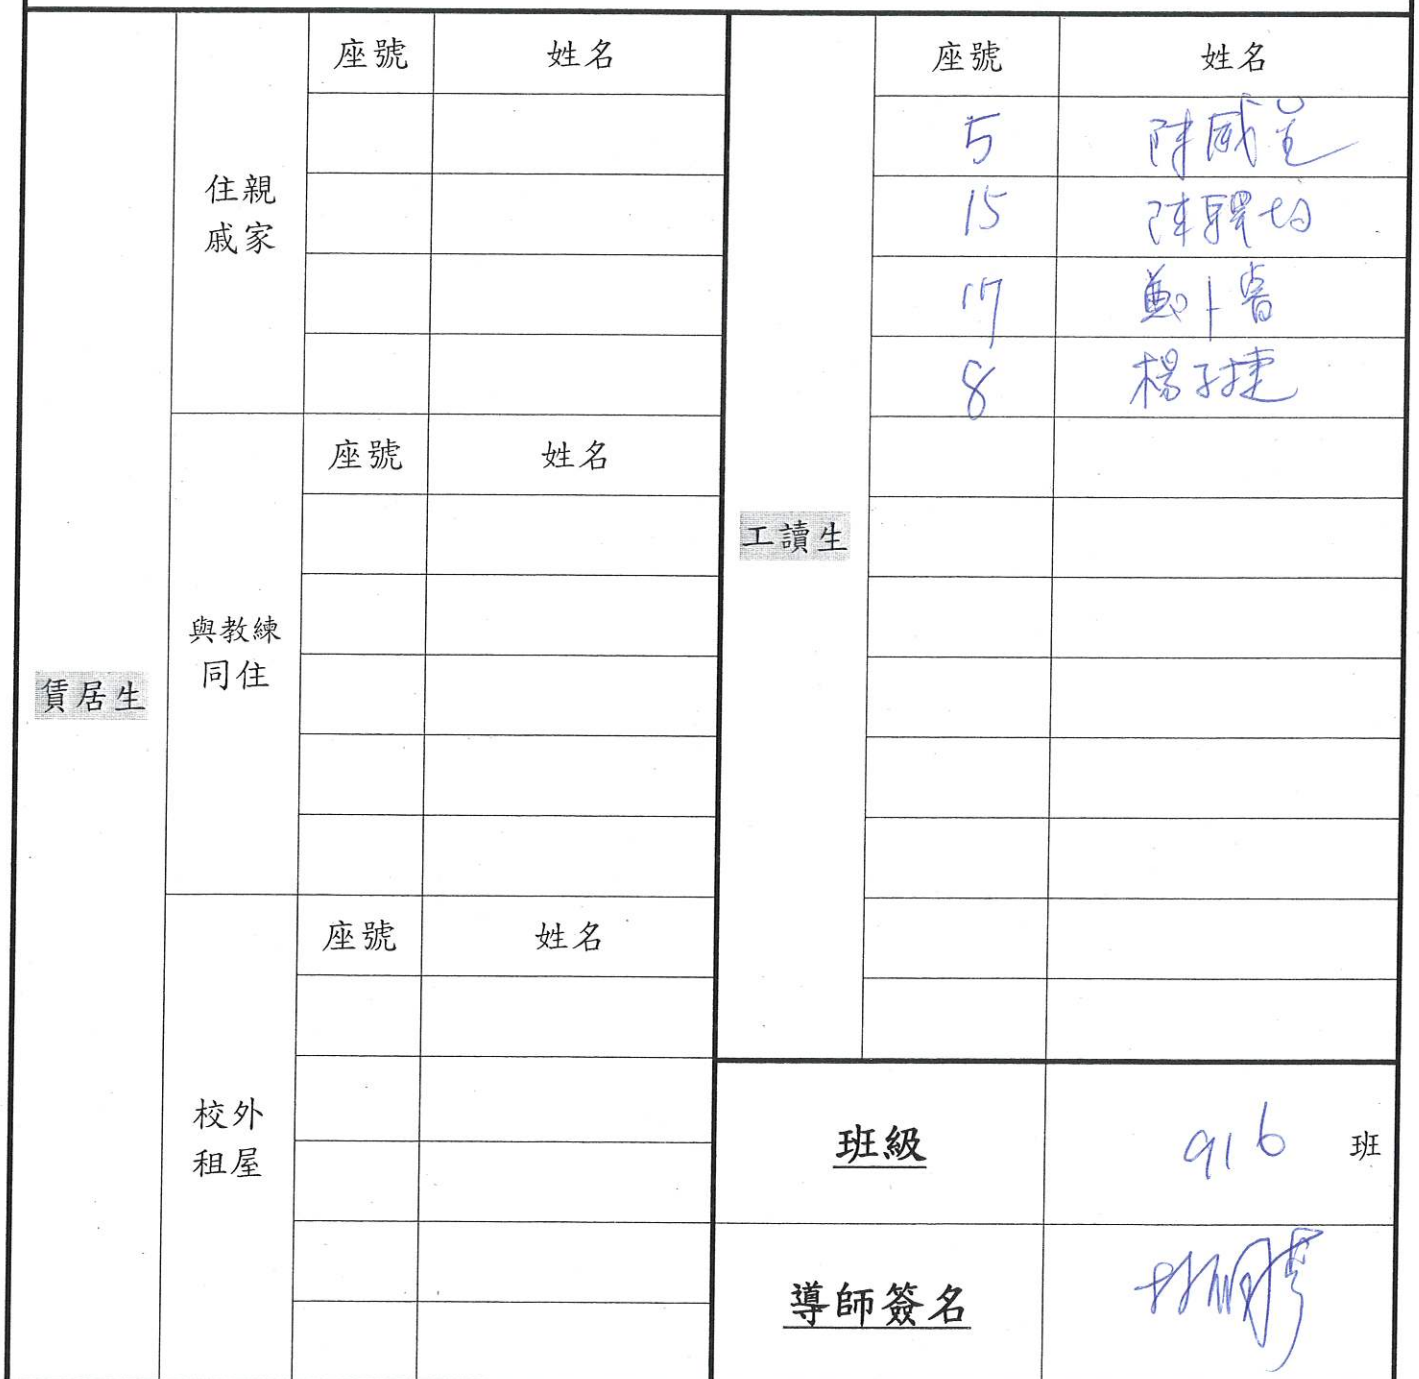 賃居生
住親
戚家
座號 姓名
與教練
同住
座號 姓名
校外
租屋
座號 姓名
工讀生
座號 姓名
5 陳威
15 陳驛均
17 卜睿
8 楊子捷
班級 916 班
導師簽名